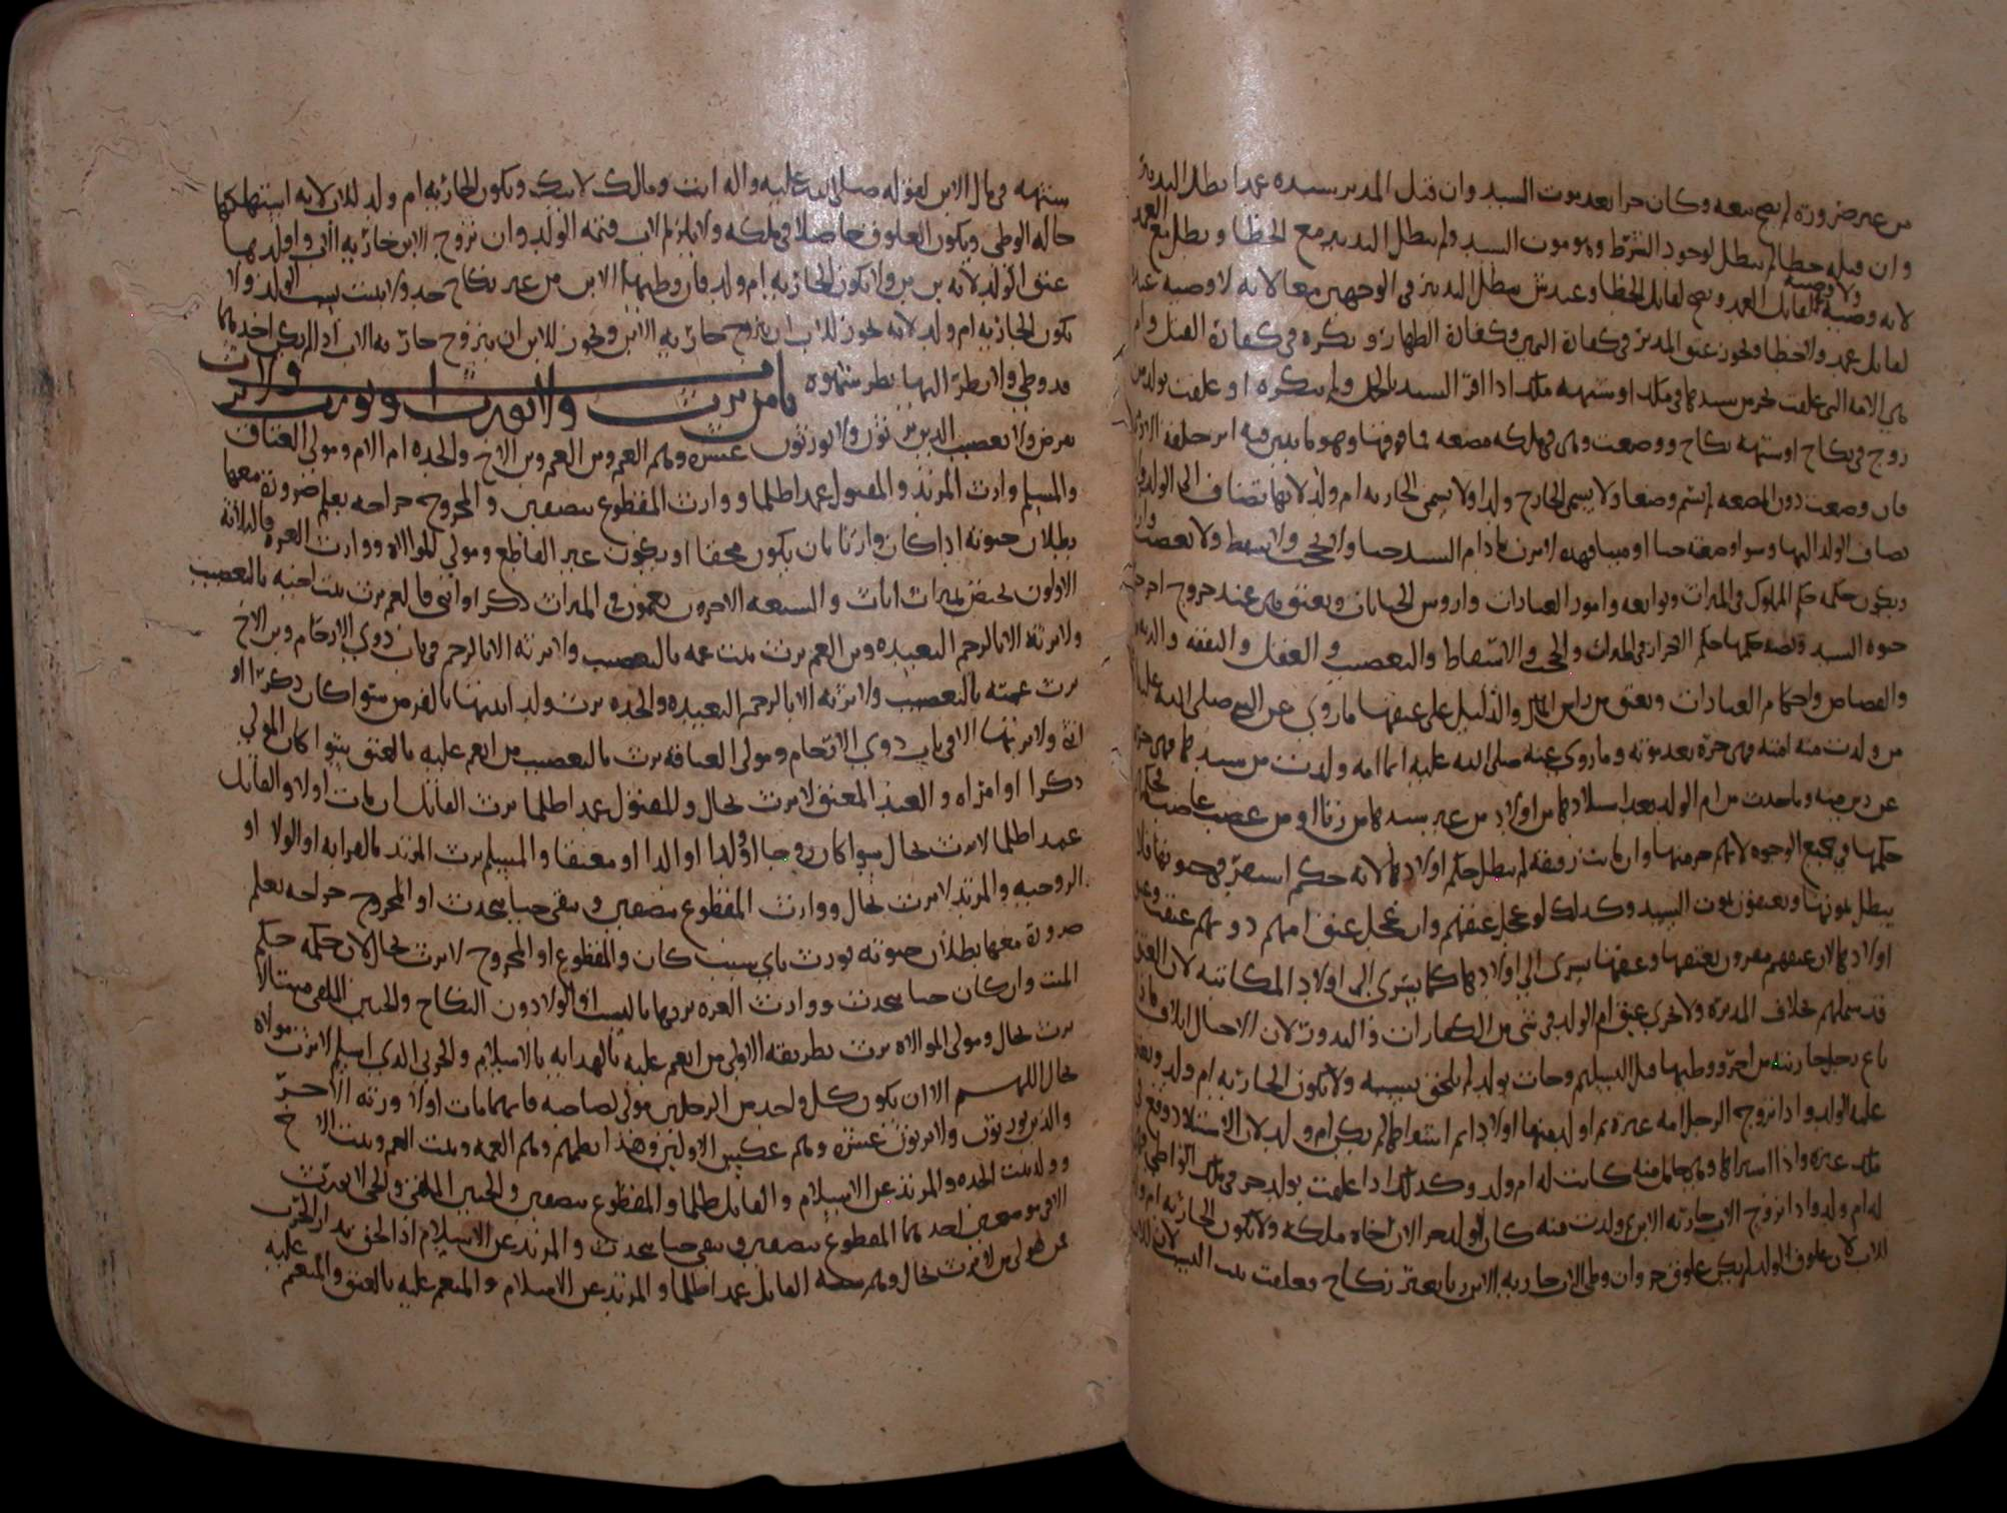 من غير ضرورة لم يصح بيعه وكان حرا بعد موت السيد وان قتل المدبر سيده عمدا بطل التدبير
وان قتله خطا لم يبطل لوجود الشرط وهو موت السيد ولم يبطل التدبير مع الخطا وبطل مع العمد
لانه وصية ولا وصية لقاتل العمد وتصح لقاتل الخطا وعند ش يبطل التدبير في الوجهين معا لانه لا وصية عنده
لقاتل عمد ولا خطا ويجوز عتق المدبر في كفارة اليمين وكفارة الظهار ويكره في كفارة القتل وام
هي الامة التي علقت بحر من سيدها في ملك او شبهة ملك اذا اقر السيد بالحمل ولم ينكره او علقت بولد من
زوج في نكاح او شبهة نكاح ووضعت وهي في ملكه مضغة فما فوقها وهو ما يتبين فيه اثر خلقة الادمي
فان وضعت دون المضغة لم يتم وضعا ولا يسمى الخارج ولدا ولا يسمى الجارية ام ولد لانها تضاف الى الولد
يضاف الولد اليها وسوا وضعته حيا او ميتا فهذه لا ترث ما دام السيد حيا ولا تحجب ولا تسقط ولا تعصب
ويكون حكمه حكم المملوك في الميراث وتوابعه وامور العبادات واروش الجنايات وتعتق هي عند خروج اخر
حياة السيد حكمها حكم الاحرار في الميراث والحجب والاسقاط والتعصيب والعقل والنفقة والدية
والقصاص واحكام العبادات وتعتق من راس المال والدليل على عتقها ما روي عن النبي صلى الله عليه
من ولدت منه امته فهي حرة بعد موته وما روي عنه صلى الله عليه ايما امة ولدت من سيدها فهي حرة
عن دبر منه وما حدث من ام الولد بعد استيلادها من اولاد من غير سيدها من زنا او من غصب غاصب
حكمها في جميع الوجوه لانهم جزء منها وان ماتت رقيقة لم يبطل حكم اولادها لانه حكم استقر في حيوتها فلا
يبطل بموتها ويعتقون بموت السيد وكذلك لو عجل عتقهم وان عجل عتق امهم دونهم عتقت وعتق
اولادها لان عتقهم مقرون بعتقها وعتقها يسري الى اولادها كما يسري الى اولاد المكاتبة لان العتق
قد شملهم بخلاف المدبرة ولا يجزي عتق ام الولد في شي من الكفارات والنذور لان الاحبال اتلاف فاذا
باع رجل جاريته من اخر ووطيها قبل التسليم وجات بولد لم يلحق نسبه ولا تكون الجارية ام ولد
عليه الولد واذا تزوج الرجل امة غيره ثم اولدها اولادا ثم اشتراها لم يكن ام ولد لان الاستيلاد وقع في
ملك غيره واذا اشتراها وهي حامل منه كانت له ام ولد وكذلك اذا علقت بولد حر في ملك الواطي
له ام ولد واذا تزوج الاب جارية الابن وولدت منه كان الولد حرا لان اخاه ملكه ولا تكون الجارية ام
للاب لان علوق الولد لم يكن علوق حر وان وطي الاب جارية الابن بالغة بغير نكاح وعلقت ثبت النسب لان للاب
شبهة في مال الابن لقوله صلى الله عليه واله انت ومالك لابيك وتكون الجارية ام ولد للاب لانه استهلكها
حالة الوطي ويكون العلوق حاصلا في ملكه ولا يلزم الاب قيمة الولد وان تزوج الابن جارية الاب واولدها
عتق الولد لانه بن بن ولا تكون الجارية ام ولد فان وطيها الابن من غير نكاح حد ولا يثبت نسب الولد ولا
تكون الجارية ام ولد لانه يجوز للاب ان يتزوج جارية الابن ويجوز للابن ان يتزوج جارية الاب اذا لم يكن احدهما
قد وطي ولا نظر اليها نظر شهوة باب من يرث ولا يورث او يورث ولا يرث
بفرض ولا تعصيب الذين يرثون ولا يورثون عشرة وهم العم وبن العم وبن الاخ والجدة ام الام ومولى العتاق
والمسلم وارث المرتد والمقتول عمدا ظلما ووارث المقطوع نصفين والمجروح جراحة يعلم ضرورة معها
بطلان حيوته اذا كان وارثا بان يكون محقا او يكون غير القاطع ومولى الموالاة ووارث الغرة فالثلاثة
الاولون يختص بميراث اناث والسبعة الاخرون يعمون في الميراث ذكرا وانثى فالعم يرث بنت اخيه بالتعصيب
ولا ترثه الا بالرحم البعيدة وبن العم يرث بنت عمه بالتعصيب ولا ترثه الا بالرحم في باب ذوي الارحام وبن الاخ
يرث عمته بالتعصيب ولا ترثه الا بالرحم البعيدة والجدة ترث ولد ابنتها بالفرض سوا كان ذكرا او
انثى ولا يرثها الا في باب ذوي الارحام ومولى العتاقة يرث بالتعصيب من انعم عليه بالعتق سوا كان المولى
ذكرا او امراة والعبد المعتق لا يرث بحال والمقتول عمدا ظلما يرث القاتل ان مات اولا والقاتل
عمدا ظلما لا يرث بحال سوا كان زوجا او ولدا او والدا او معتقا والمسلم يرث المرتد بالقرابة او الولا او
الزوجية والمرتد لا يرث بحال ووارث المقطوع نصفين وبقي حيا يحدث او المجروح جراحة يعلم
ضرورة معها بطلان حيوته يورث باي سبب كان والمقطوع او المجروح لا يرث بحال لان حكمه حكم
الميت وان كان حيا يحدث ووارث الغرة يرثها بالنسب او الولا دون النكاح والجنين الملقى ميتا لا
يرث بحال ومولى الموالاة يرث بطريقه الاولى من انعم عليه بالهداية بالاسلام والحربي الذي اسلم لا يرث مولاه
بحال اللهم الا ان يكون كل واحد من الرجلين مولى لصاحبه فايهما مات اولا ورثه الاخر
والذين يورثون ولا يرثون عشرة وهم عكس الاولين وهذا نظمهم وهم العمة وبنت العم وبنت الاخ
وولد بنت الجدة والمرتد عن الاسلام والقاتل ظلما والمقطوع نصفين والجنين الملقى والحي لا يورث
الا في موضعين احدهما المقطوع نصفين وبقي حيا يحدث والمرتد عن الاسلام اذا لحق بدار الحرب
من هو لى من لا يرث بحال وهم ستة القاتل عمدا ظلما والمرتد عن الاسلام والمنعم عليه بالعتق والمنعم عليه